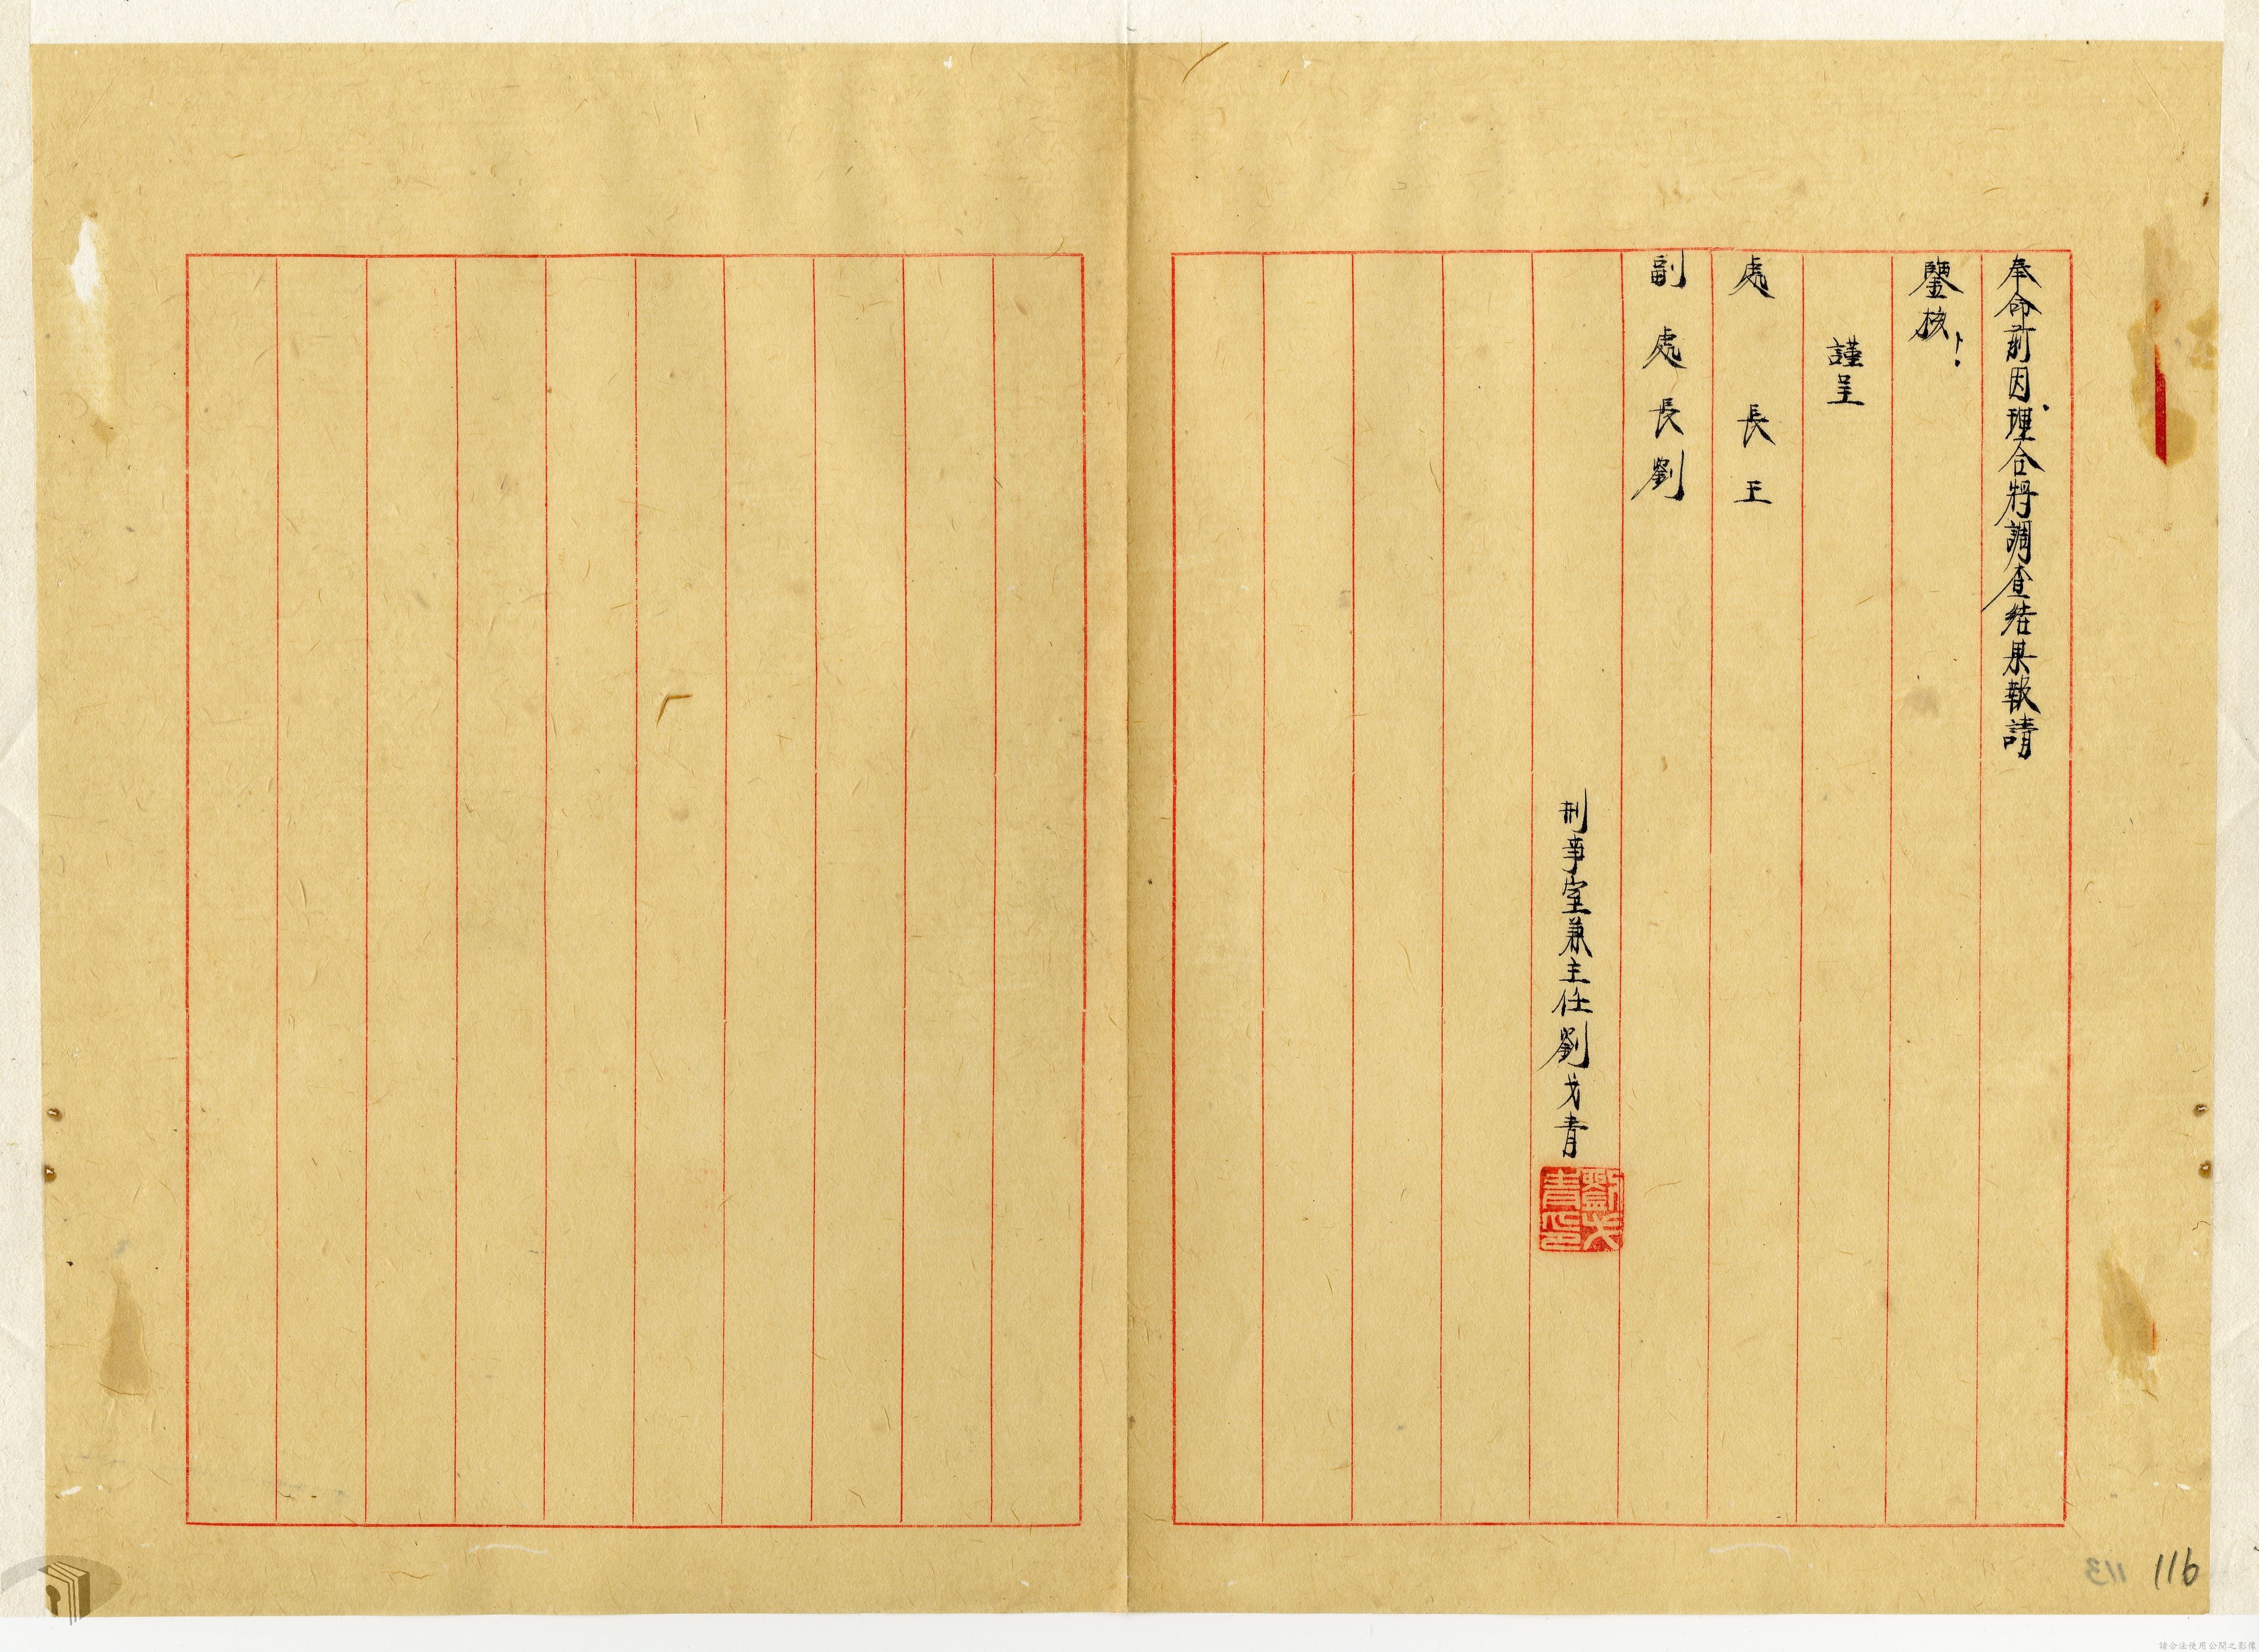 奉命前因理合將調查結果報請
鑒核！
謹呈
處長王
副處長劉
刑事室兼主任劉戈青
劉戈青印
116
113
請合法使用公開之影像